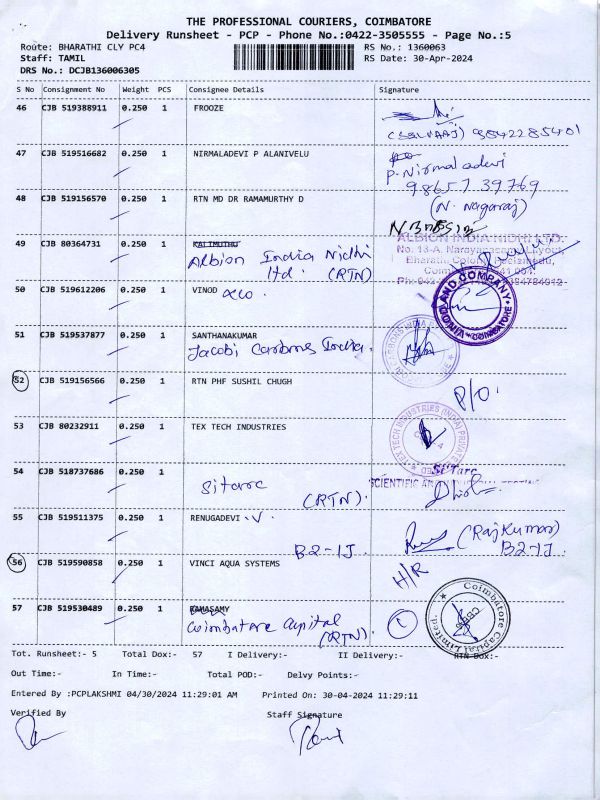 THE PROFESSIONAL COURIERS, COIMBATORE
Delivery Runsheet - PCP - Phone No.:0422-3505555 - Page No.:5
Route: BHARATHI CLY PC4 RS No.: 1360063
Staff: TAMIL RS Date: 30-Apr-2024
DRS No.: DCJB136006305
S No Consignment No Weight PCS Consignee Details Signature
46 CJB 519388911 0.250 1 FROOZE
9842285401
47 CJB 519516682 0.250 1 NIRMALADEVI P ALANIVELU
P. Nirmaladevi
98657 39769
48 CJB 519156570 0.250 1 RTN MD DR RAMAMURTHY D
(N. Nagaraj)
49 CJB 80364731 0.250 1 KALIMUTHU
Albion India Nidhi
ltd. (RTN)
ALBION INDIA NIDHI LTD.
No. 13-A, Narayanasamy Layout,
50 CJB 519612206 0.250 1 VINOD
AND COMPANY
COIMBATORE
51 CJB 519537877 0.250 1 SANTHANAKUMAR
Jacobi Carbons India.
52 CJB 519156566 0.250 1 RTN PHF SUSHIL CHUGH
P/O.
53 CJB 80232911 0.250 1 TEX TECH INDUSTRIES
TEX TECH INDUSTRIES (INDIA) PRIVATE
54 CJB 518737686 0.250 1
Sitarc
(RTN).
SiTarc
SCIENTIFIC
55 CJB 519511375 0.250 1 RENUGADEVI . V.
B2-1J.
(Raj Kumar)
B2-1J.
56 CJB 519590858 0.250 1 VINCI AQUA SYSTEMS
H/R
57 CJB 519530489 0.250 1
Coimbatore Capital
(RTN).
Coimbatore Capital Limited
Tot. Runsheet:- 5 Total Dox:- 57 I Delivery:- II Delivery:- RTN Dox:-
Out Time:- In Time:- Total POD:- Delvy Points:-
Entered By :PCPLAKSHMI 04/30/2024 11:29:01 AM Printed On: 30-04-2024 11:29:11
Verified By Staff Signature